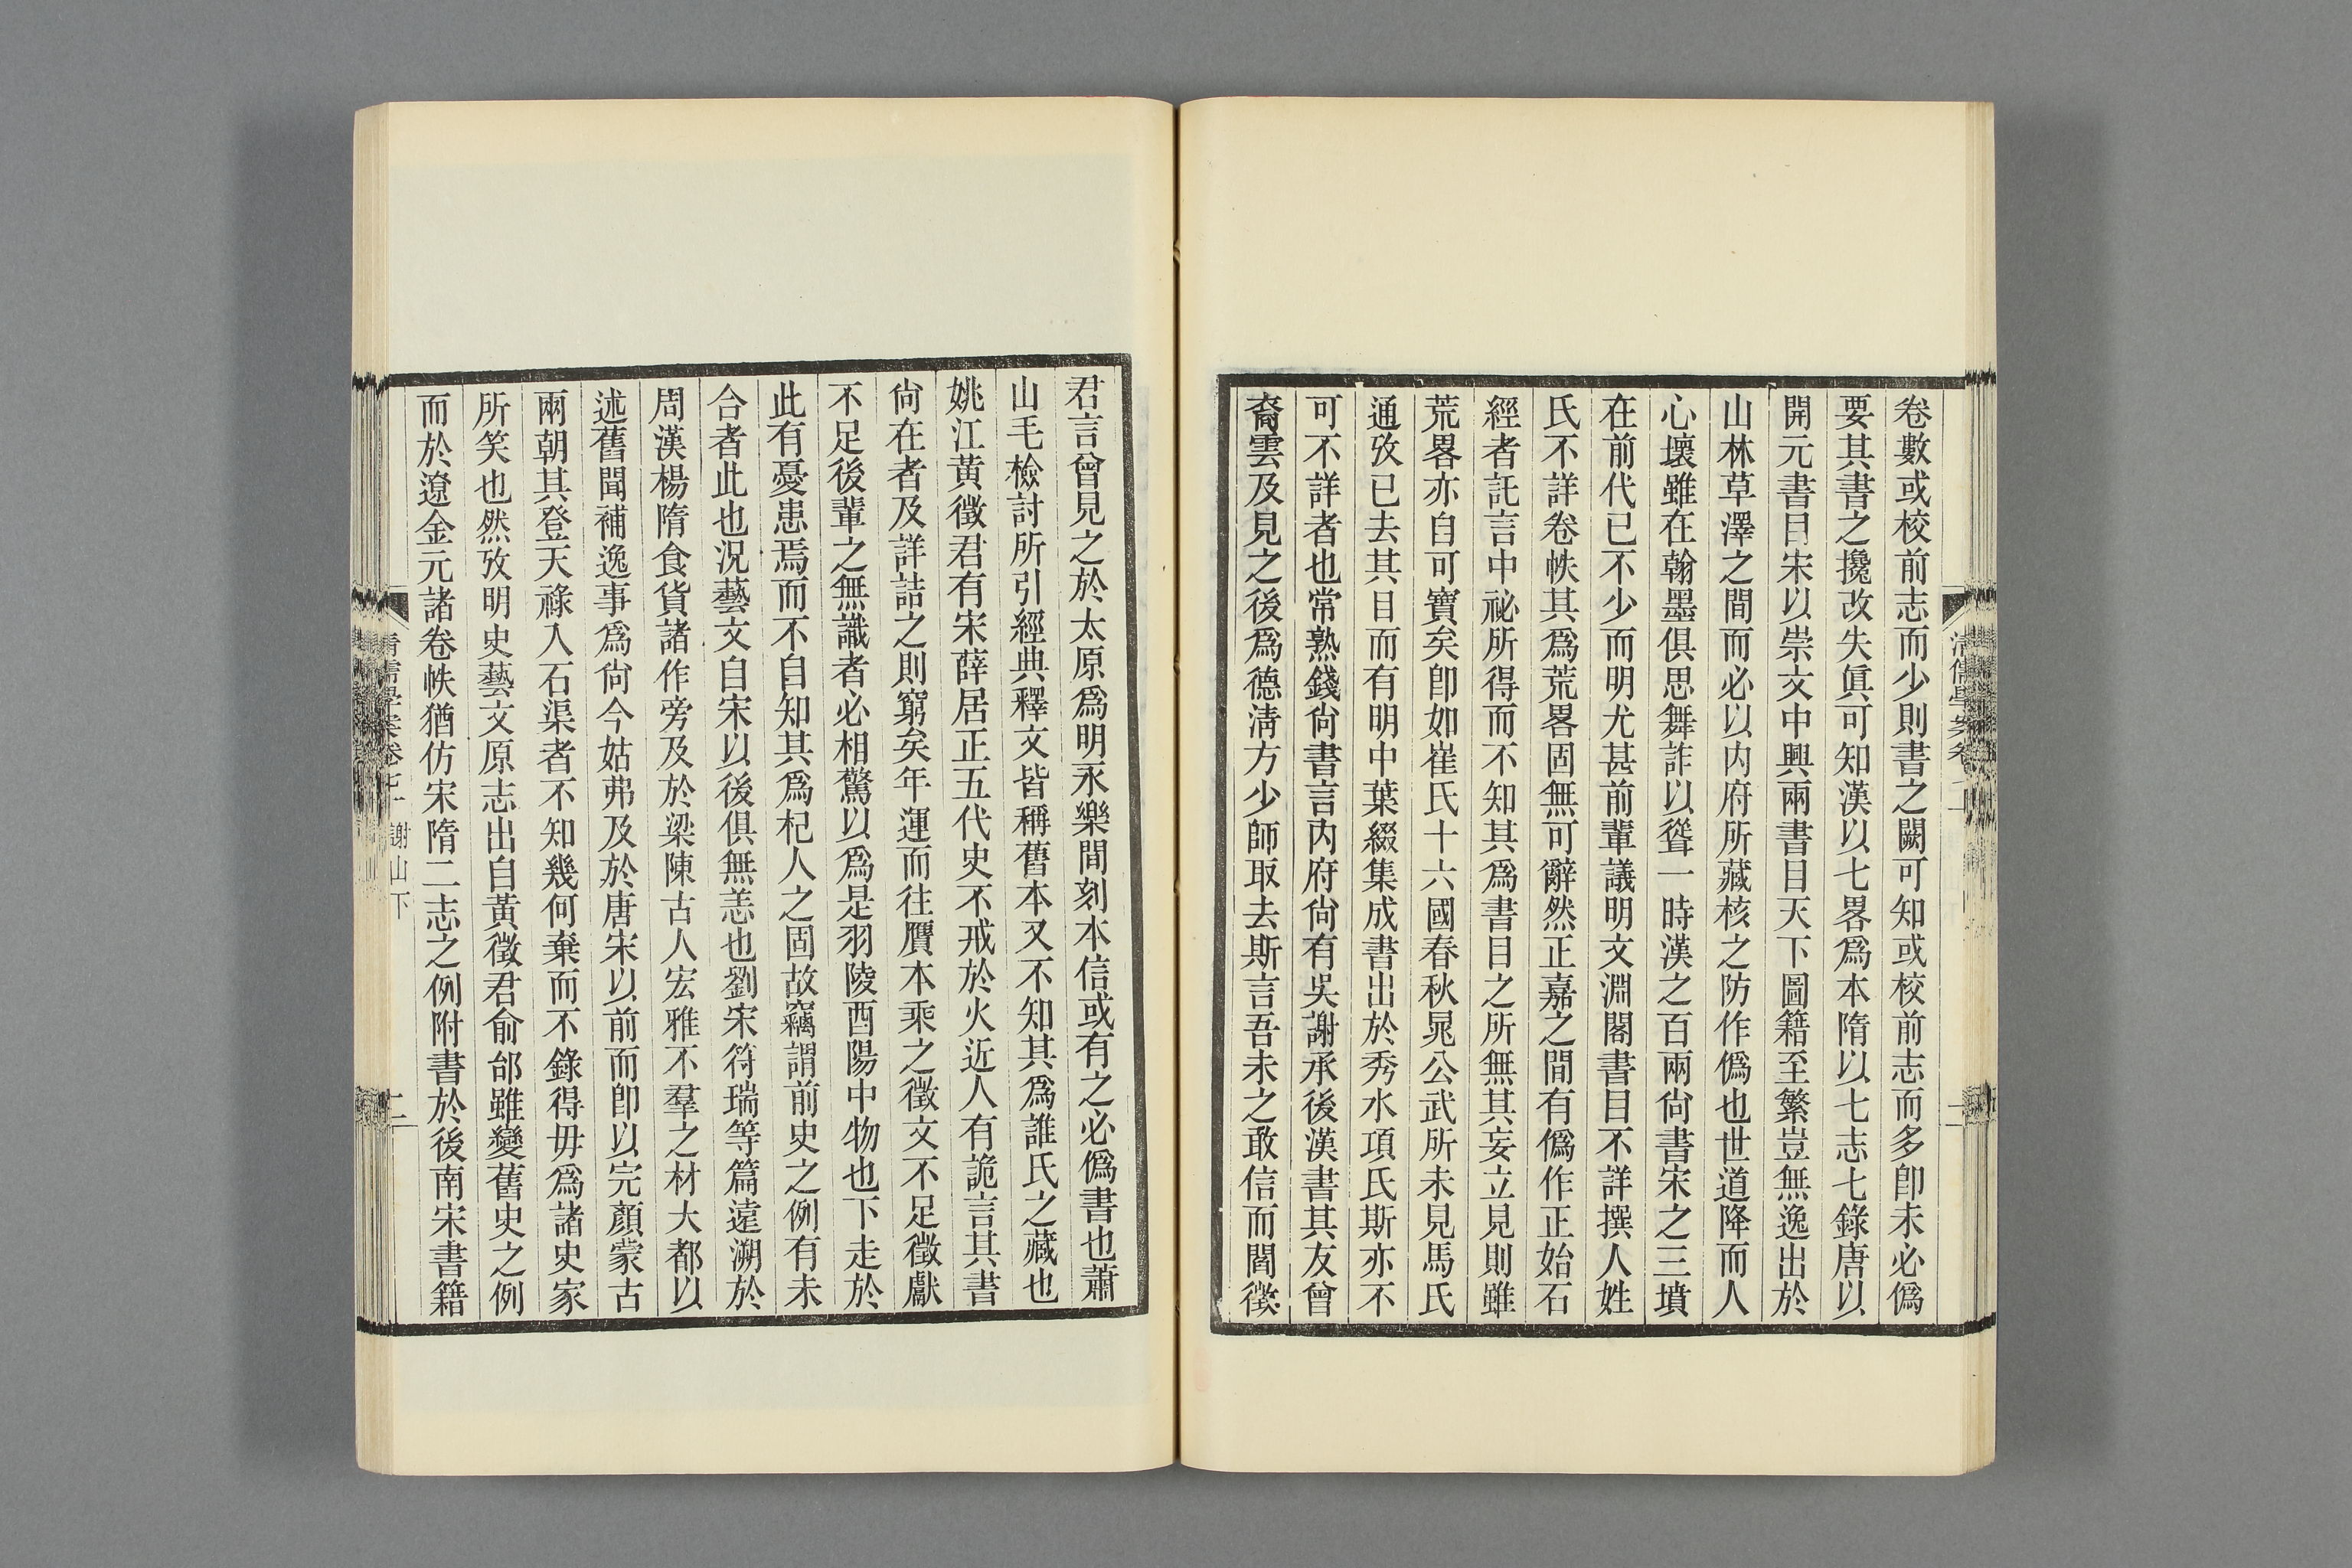 卷數或校前志而少則書之闕可知或校前志而多卽未必僞
要其書之攙改失眞可知漢以七畧爲本隋以七志七錄唐以
開元書目宋以崇文中興兩書目天下圖籍至繁豈無逸出於
山林草澤之間而必以内府所藏核之防作僞也世道降而人
心壞雖在翰墨俱思舞詐以聳一時漢之百兩尙書宋之三墳
在前代已不少而明尤甚前輩議明文淵閣書目不詳撰人姓
氏不詳卷帙其爲荒畧固無可辭然正嘉之間有僞作正始石
經者託言中祕所得而不知其爲書目之所無其妄立見則雖
荒畧亦自可寶矣卽如崔氏十六國春秋晁公武所未見馬氏
通攷已去其目而有明中葉綴集成書出於秀水項氏斯亦不
可不詳者也常熟錢尙書言内府尙有吳謝承後漢書其友曾
裔雲及見之後爲德淸方少師取去斯言吾未之敢信而閻徵
君言曾見之於太原爲明永樂間刻本信或有之必僞書也蕭
山毛檢討所引經典釋文皆稱舊本又不知其爲誰氏之藏也
姚江黃徵君有宋薛居正五代史不戒於火近人有詭言其書
尙在者及詳詰之則窮矣年運而往贋本乘之徵文不足徵獻
不足後輩之無識者必相驚以爲是羽陵酉陽中物也下走於
此有憂患焉而不自知其爲杞人之固故竊謂前史之例有未
合者此也況藝文自宋以後俱無恙也劉宋符瑞等篇遠溯於
周漢楊隋食貨諸作旁及於梁陳古人宏雅不羣之材大都以
述舊聞補逸事爲尙今姑弗及於唐宋以前而卽以完顏蒙古
兩朝其登天祿入石渠者不知幾何棄而不錄得毋爲諸史家
所笑也然攷明史藝文原志出自黃徵君俞邰雖變舊史之例
而於遼金元諸卷帙猶仿宋隋二志之例附書於後南宋書籍
謝山下
二